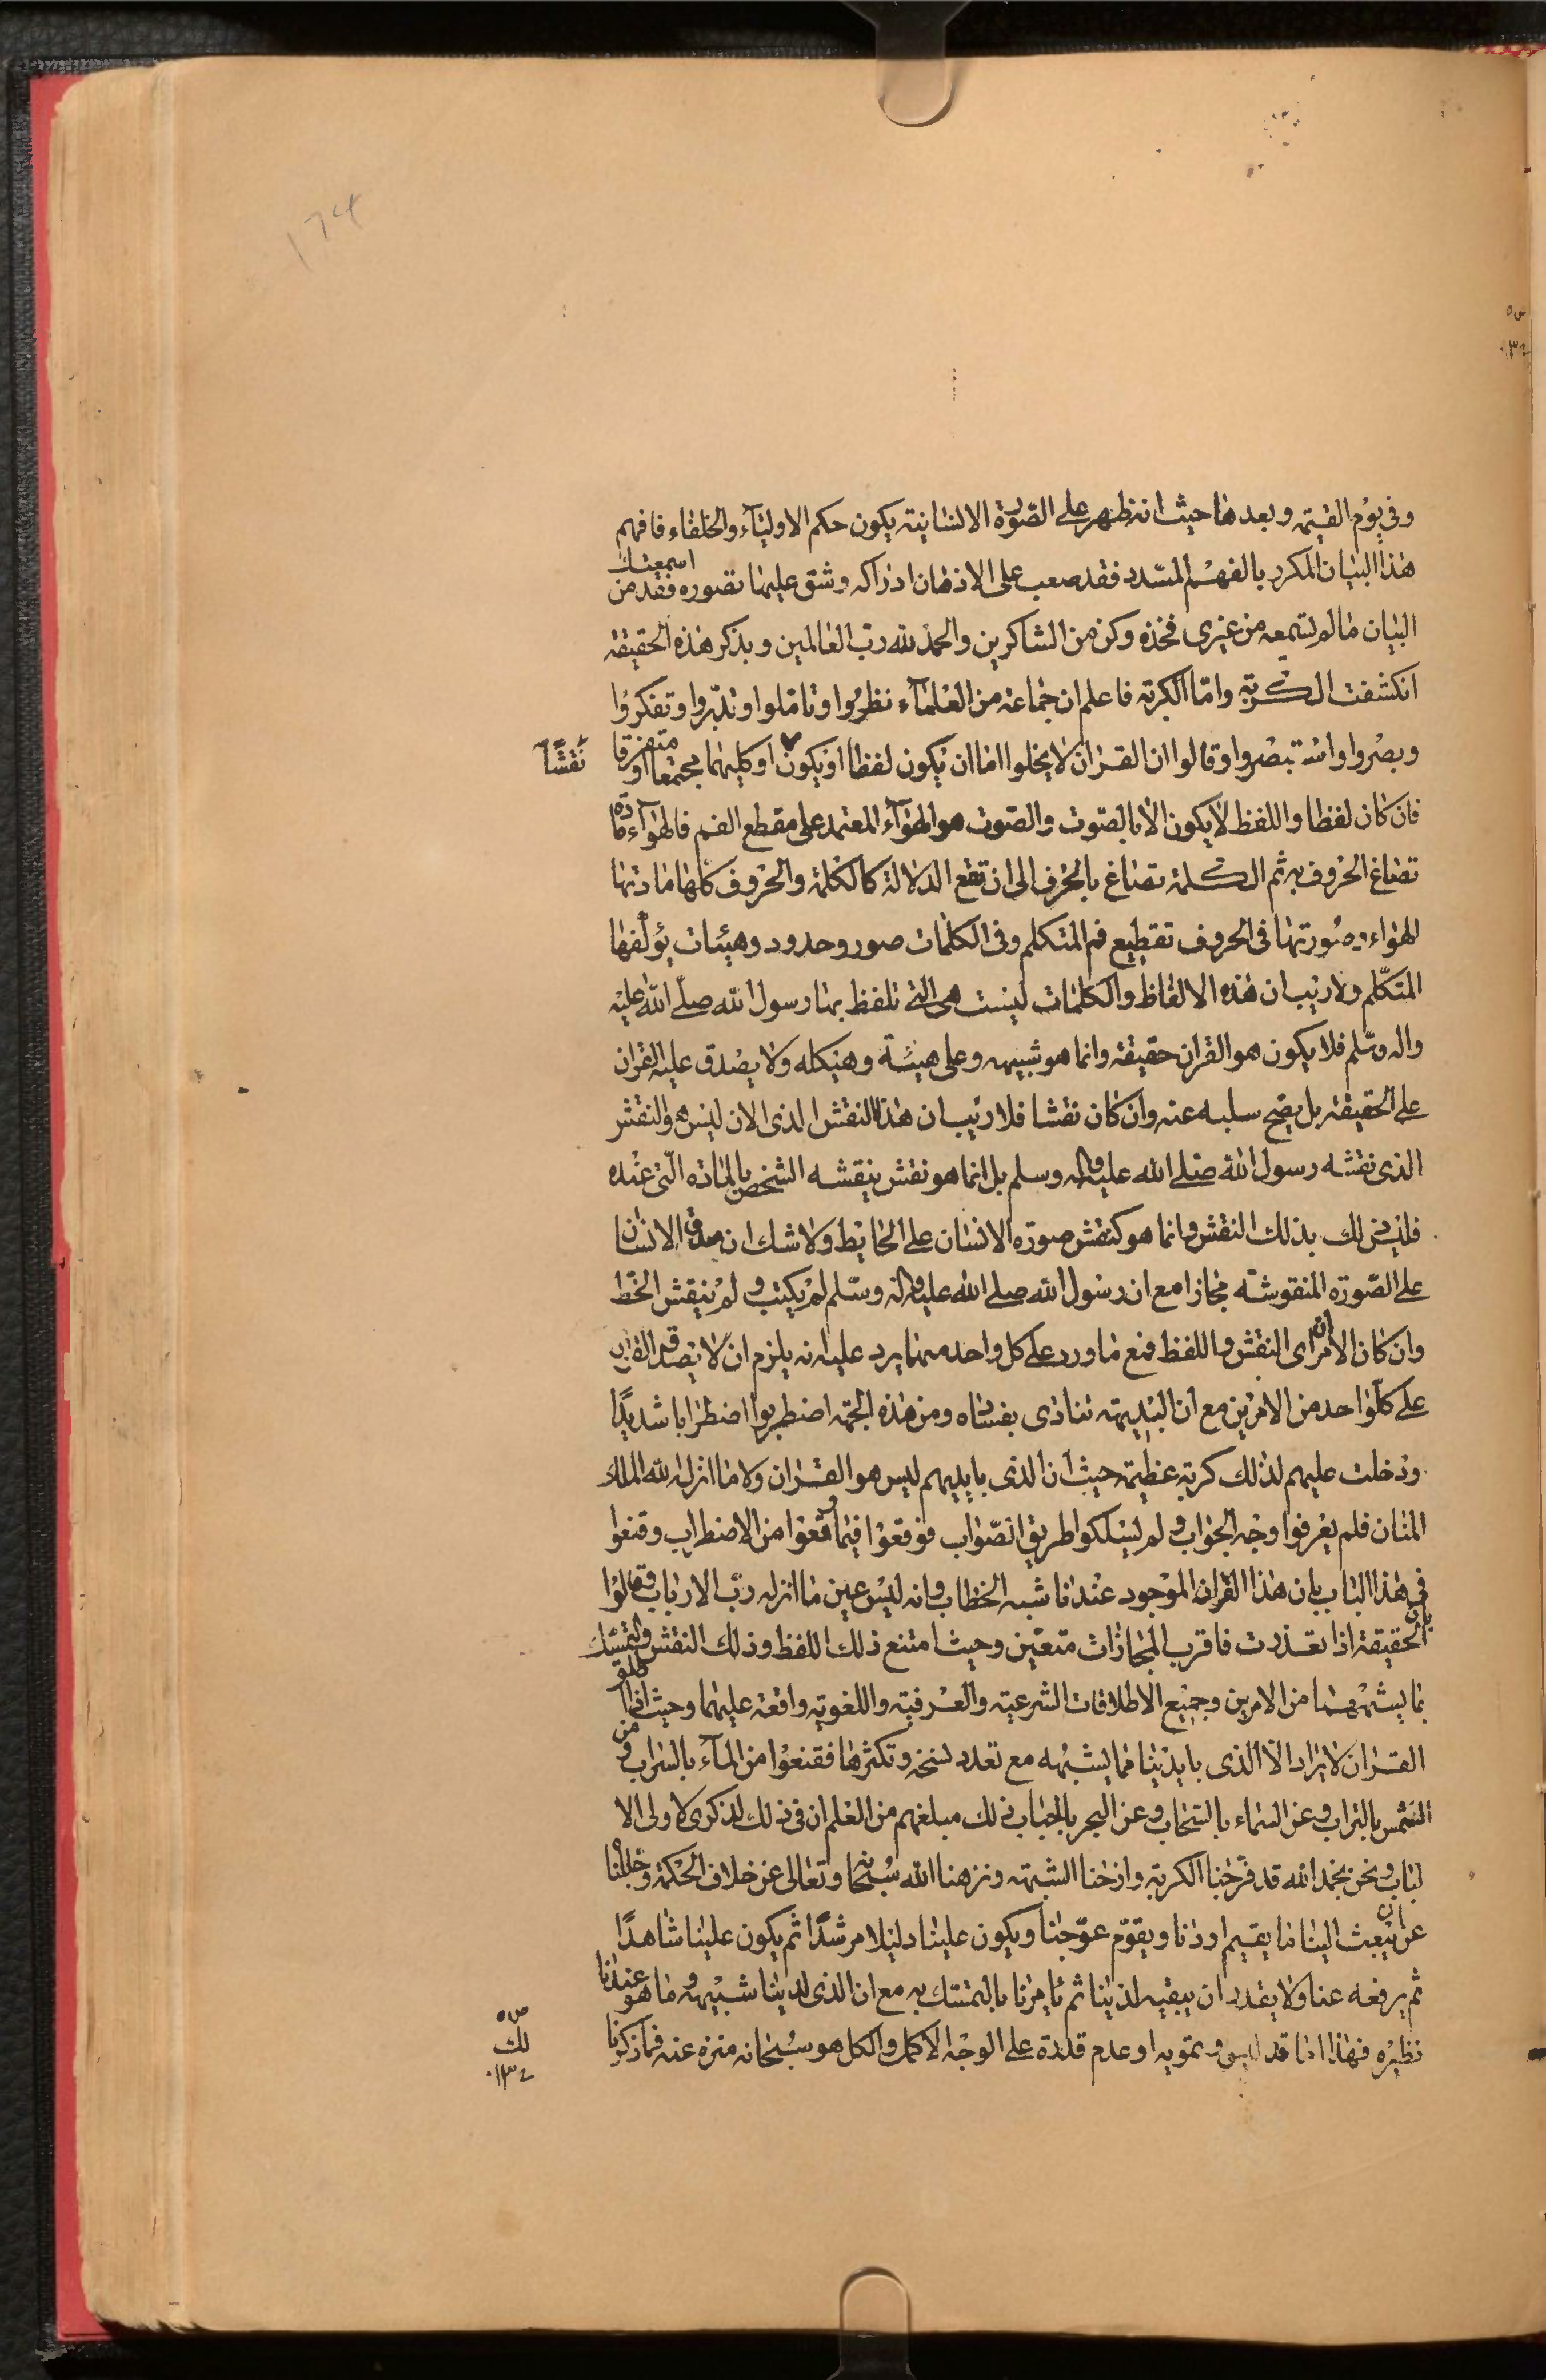 174
وفي يوم القيمة وبعدها حيث انه تظهر على الصورة الانسانية يكون حكم الاولياء والخلفاء فافهم
هذا البيان المكرر بالفهم المسدد فقد صعب على الاذهان ادراكه وشق عليها تصوره فقد اسمعتك من
البيان ما لم تسمعه من غيري فخذه وكن من الشاكرين والحمد لله رب العالمين وبذكر هذه الحقيقة
انكشفت الكربة واما الكربة فاعلم ان جماعة من العلماء نظروا وتاملوا وتدبروا وتفكروا
وبصروا واستبصروا وقالوا ان القران لا يخلوا اما ان يكون لفظا او يكون نقشاً او كليهما مجتمعا او متفرقا
فان كان لفظا واللفظ لا يكون الا بالصوت والصوت هو الهواء المعتمد على مقطع الفم فالهواء مادة
تصاغ الحروف به ثم الكلمة تصاغ بالحرف الى ان تقع الدلالة كالكلمة والحروف كلها مادتها
الهواء وصورتها في الحروف تقطيع فم المتكلم وفي الكلمات صور وحدود وهيئات يؤلفها
المتكلم ولا ريب ان هذه الالفاظ والكلمات ليست هي التي تلفظ بها رسول الله صلى الله عليه
واله وسلم فلا يكون هو القران حقيقة وانما هو شبيهه وعلى هيئته وهيكله ولا يصدق عليه القران
على الحقيقة بل يصح سلبه عنه وان كان نقشا فلا ريب ان هذا النقش الذي الان ليس هو النقش
الذي نقشه رسول الله صلى الله عليه واله وسلم بل انما هو نقش ينقشه الشخص بالمادة التي عنده
فليس ذلك بذلك النقش وانما هو كنقش صورة الانسان على الحايط ولا شك ان صدق الانسان
على الصورة المنقوشة مجازا مع ان رسول الله صلى الله عليه واله وسلم لم يكتب ولم ينقش الخط
وان كان الامران اى النقش واللفظ فمع ما ورد على كل واحد منهما يرد عليه انه يلزم ان لا يصدق القران
على كل واحد من الامرين مع ان البديهة تنادى بفساده ومن هذه الجهة اضطربوا اضطرابا شديدًا
ودخلت عليهم لذلك كربة عظيمة حيث ان الذى بايديهم ليس هو القران ولا ما انزله الله الملك
المنان فلم يعرفوا وجه الجواب ولم يسلكوا طريق الصواب فوقعوا فيما وقعوا من الاضطراب وقنعوا
في هذا الباب بان هذا القران الموجود عندنا شبه الخطاب وانه ليس عين ما انزله رب الارباب وقالوا
بان الحقيقة اذا تعذرت فاقرب المجازات متعين وحيث امتنع ذلك اللفظ وذلك النقش والتمسك
بما يشبههما من الامرين وجميع الاطلاقات الشرعية والعرفية واللغوية واقعة عليهما وحيث اذا اطلق
القران لا يراد الا الذى بايدينا مما يشبهه مع تعدد نسخه وتكثرها فقنعوا من الماء بالسراب ومن
الشمس بالتراب وعن السماء بالسحاب وعن البحر بالحباب ذلك مبلغهم من العلم ان في ذلك لذكرى لاولى الا
لباب ونحن بحمد الله قد فرجنا الكربة وازحنا الشبهة ونزهنا الله سبحانه وتعالى عن خلاف الحكمة وجللناه
عن ان يبعث الينا ما يقيم اودنا ويقوم عوجنا ويكون علينا دليلا مرشدًا ثم يكون علينا شاهدًا
ثم يرفعه عنا ولا يقدر ان يبقيه لدينا ثم يامرنا بالتمسك به مع ان الذى لدينا شبيهه وما هو عندنا
نظيره فهذا اما تدليس وتمويه او عدم قدرة على الوجه الاكمل والكل هو سبحانه منزه عنه فما ذكرنا